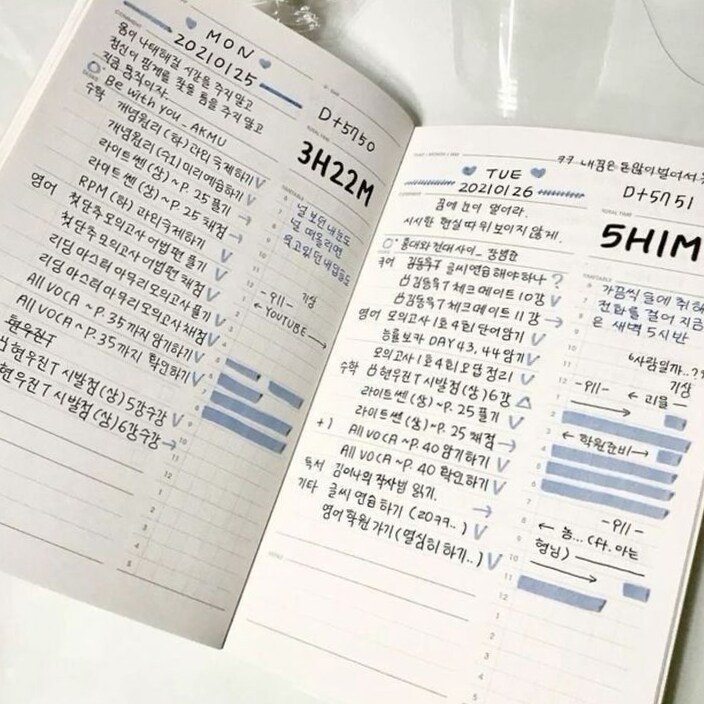 MON
20210125
몸이 나태해질 시간을 주지 말고
정신이 핑계를 찾을 틈을 주지 말고
지금 움직이자.
Be with you _ AKMU
D+5750
TOTAL TIME
3H22M
수학 개념원리 (하) 라인 극제하기
개념원리 (수1) 미리 예습하기
라이트쎈 (상) ~ P. 25 풀기
라이트쎈 (상) ~ P. 25 채점
RPM (하) 라인극제하기
영어 첫단추 모의고사 어법편 풀기
첫단추 모의고사 어법편 채점
리딩 마스터 마무리 모의고사 풀기
리딩 마스터 마무리 모의고사 채점
All VOCA ~ P. 35까지 암기하기
All VOCA ~ P. 35까지 확인하기
현우진T
현우진T 시발점 (상) 5강 수강
현우진T 시발점 (상) 6강 수강
널 보던 내 눈도
널 떠올리면
웃고 있던 내 입술도
기상
← YOUTUBE →
내 꿈은 돈 많이 벌어서
TUE
20210126
꿈에 눈이 멀어라.
시시한 현실 따위 보이지 않게.
D+5751
TOTAL TIME
5H1M
국어 김동욱T 글씨 연습 해야하나 ?
김동욱T 체크메이트 10강
김동욱T 체크메이트 11강
영어 모의고사 1호 4회 단어 암기
능률보카 DAY 43, 44 암기
모의고사 1호 4회 오답 정리
수학 현우진T 시발점 (상) 6강
라이트쎈 (상) ~ P. 25 풀기
라이트쎈 (상) ~ P. 25 채점
+) All VOCA ~ P. 40 암기하기
All VOCA ~ P. 40 확인하기
독서 김이나의 작사법 읽기.
기타 글씨 연습하기 (2099..)
영어학원 가기 (열심히 하기..)
가끔씩 술에 취해
전화를 걸어 지금
은 새벽 5시 반
"사람일까..?
기상
← 학원준비 →
← 놈... (ft. 아는
형님) →